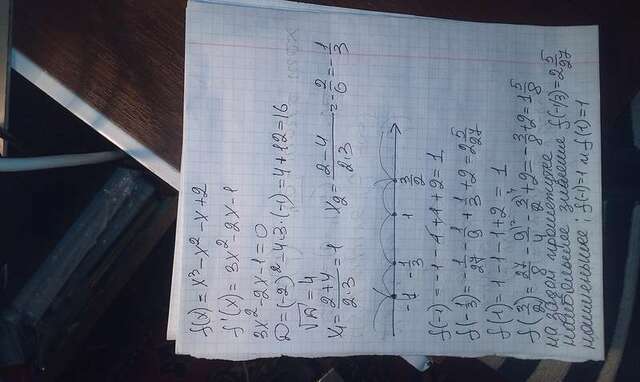 f(x) = x³ - x² - x + 2
f'(x) = 3x² - 2x - 1
3x² - 2x - 1 = 0
D = (-2)² - 4·3·(-1) = 4 + 12 = 16
√D = 4
x₁ = (2+4)/(2·3) = 1 x₂ = (2-4)/(2·3) = -2/6 = -1/3
-1 -1/3 1 3/2
f(-1) = -1 - 1 + 1 + 2 = 1
f(-1/3) = -1/27 - 1/9 + 1/3 + 2 = 2 5/27
f(1) = 1 - 1 - 1 + 2 = 1
f(3/2) = 27/8 - 9/4 - 3/2 + 2 = 1 5/8
на промежутке
наибольшее значение f(-1/3) = 2 5/27
наименьшее: f(-1) = 1 и f(1) = 1